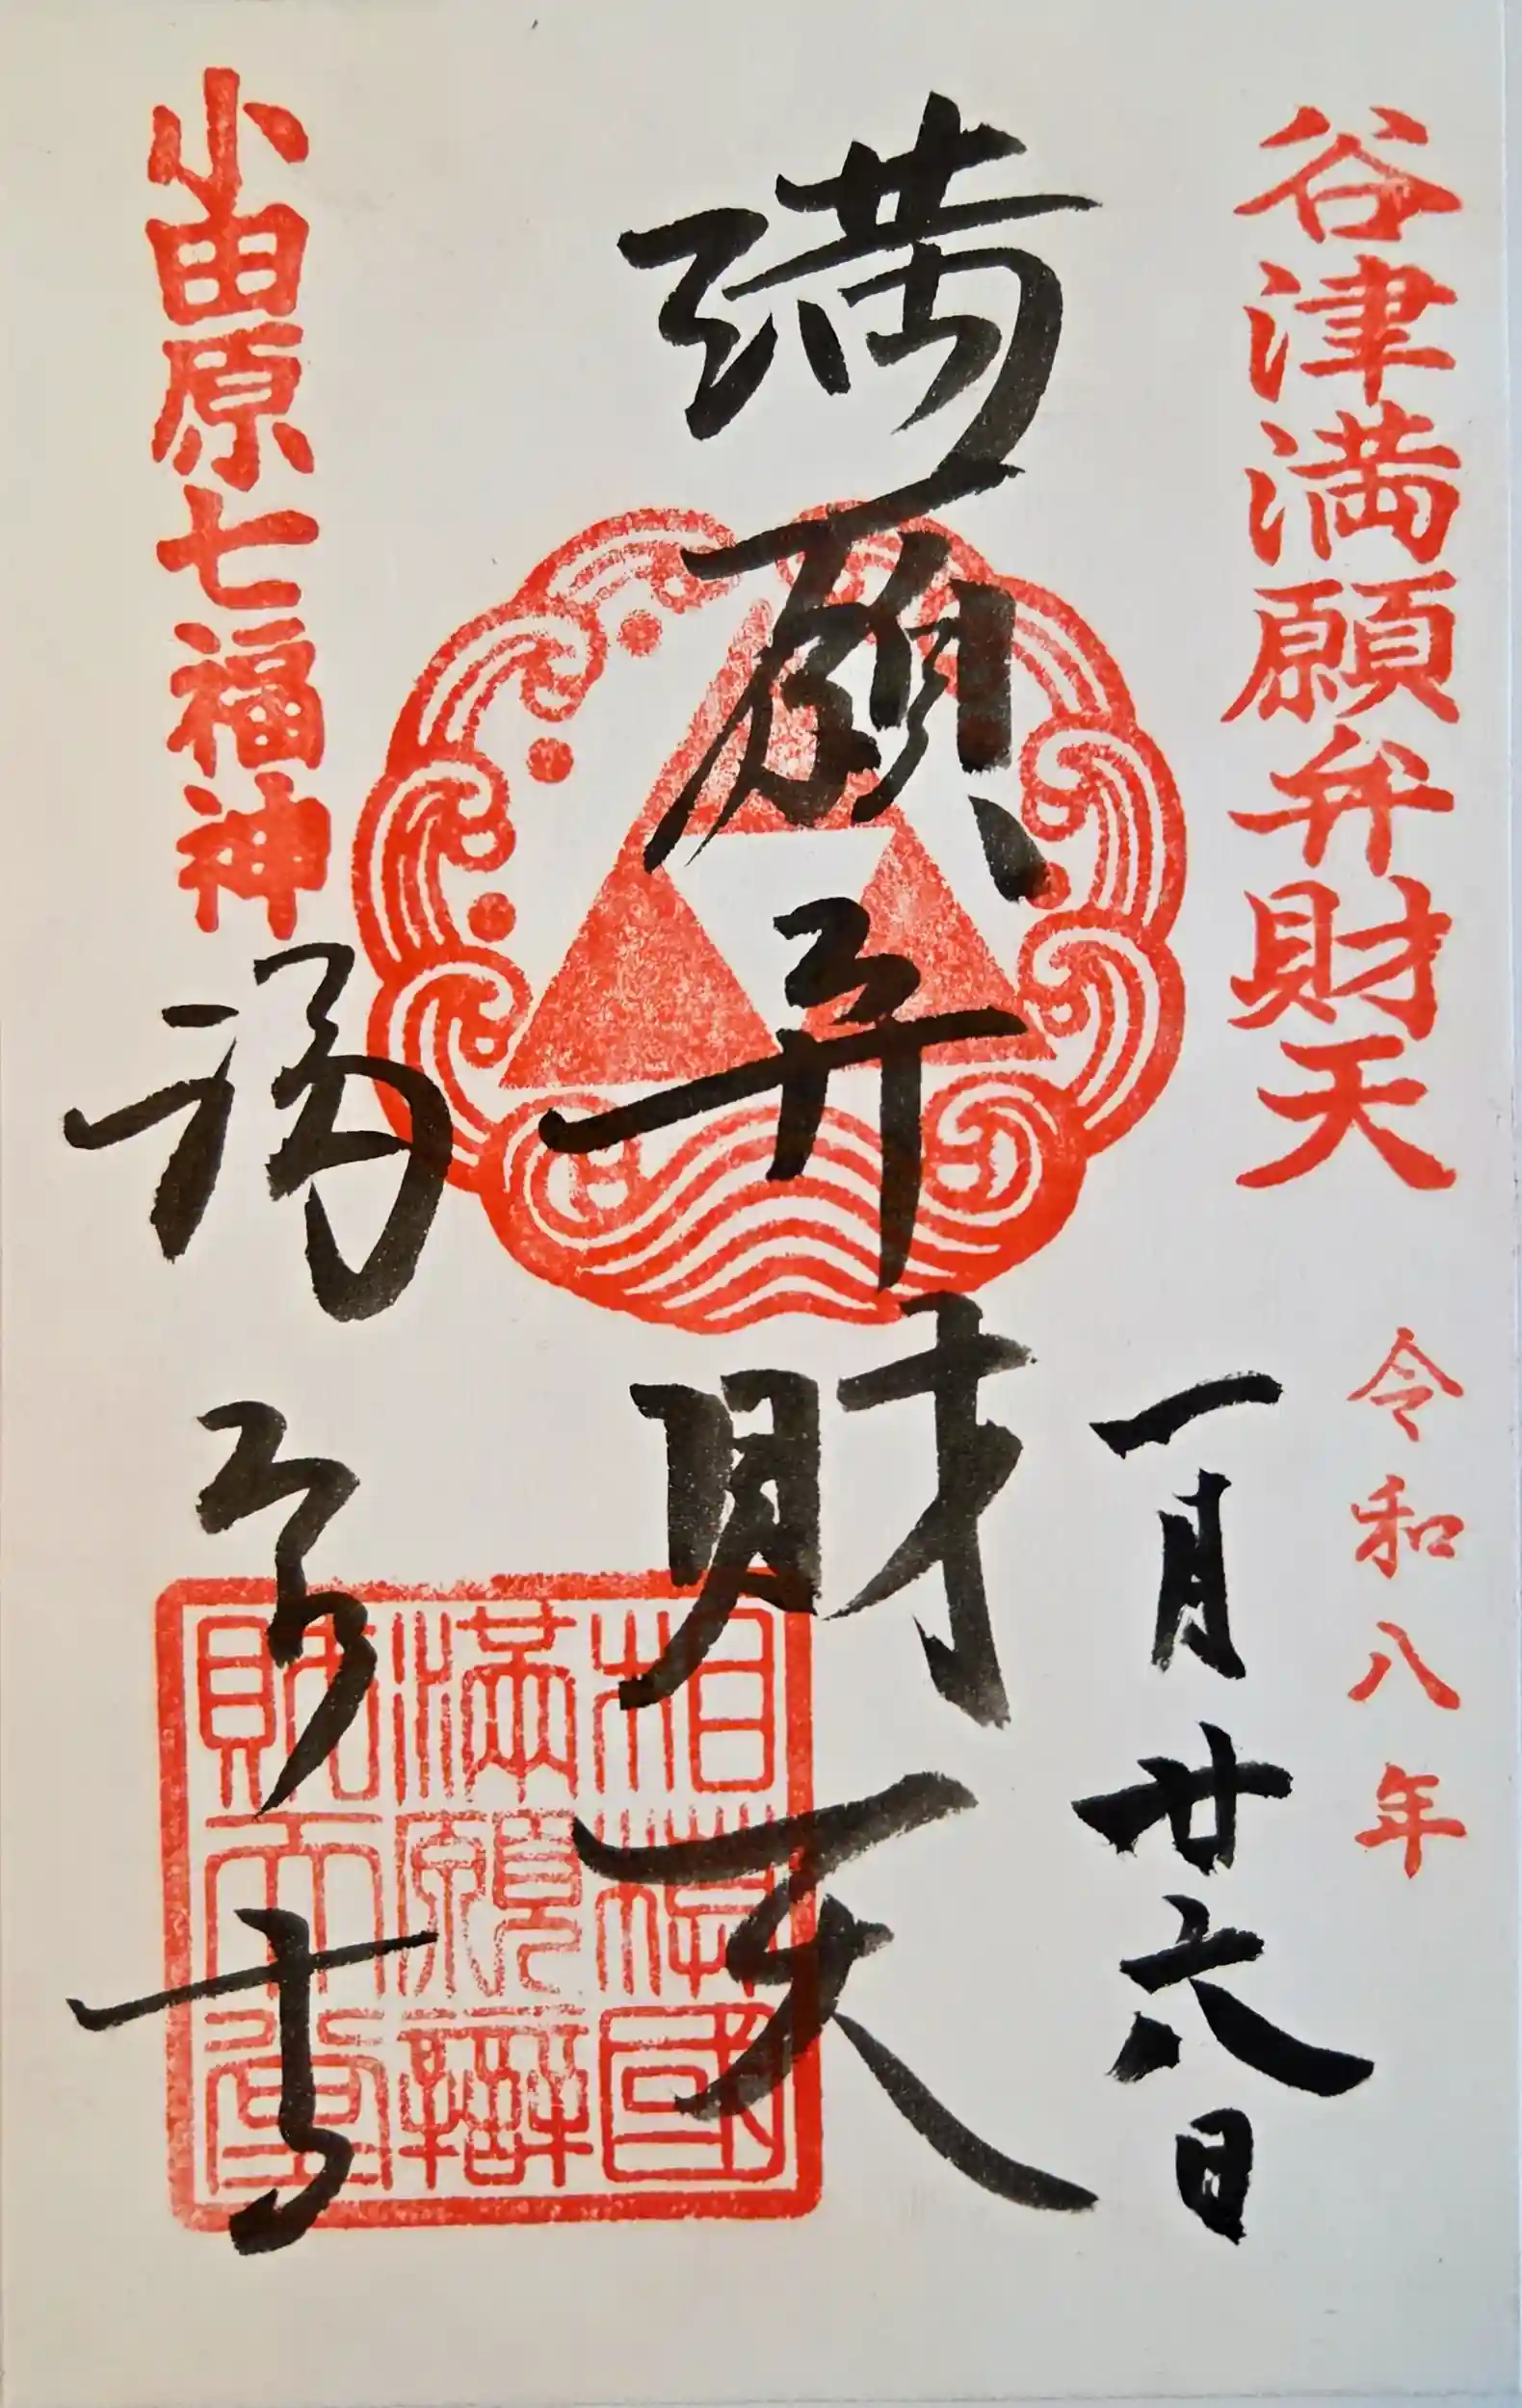 谷津満願弁財天
令和八年
一月廿六日
満願弁財天
小田原七福神
福泉寺
相模國
滿願辯
財天